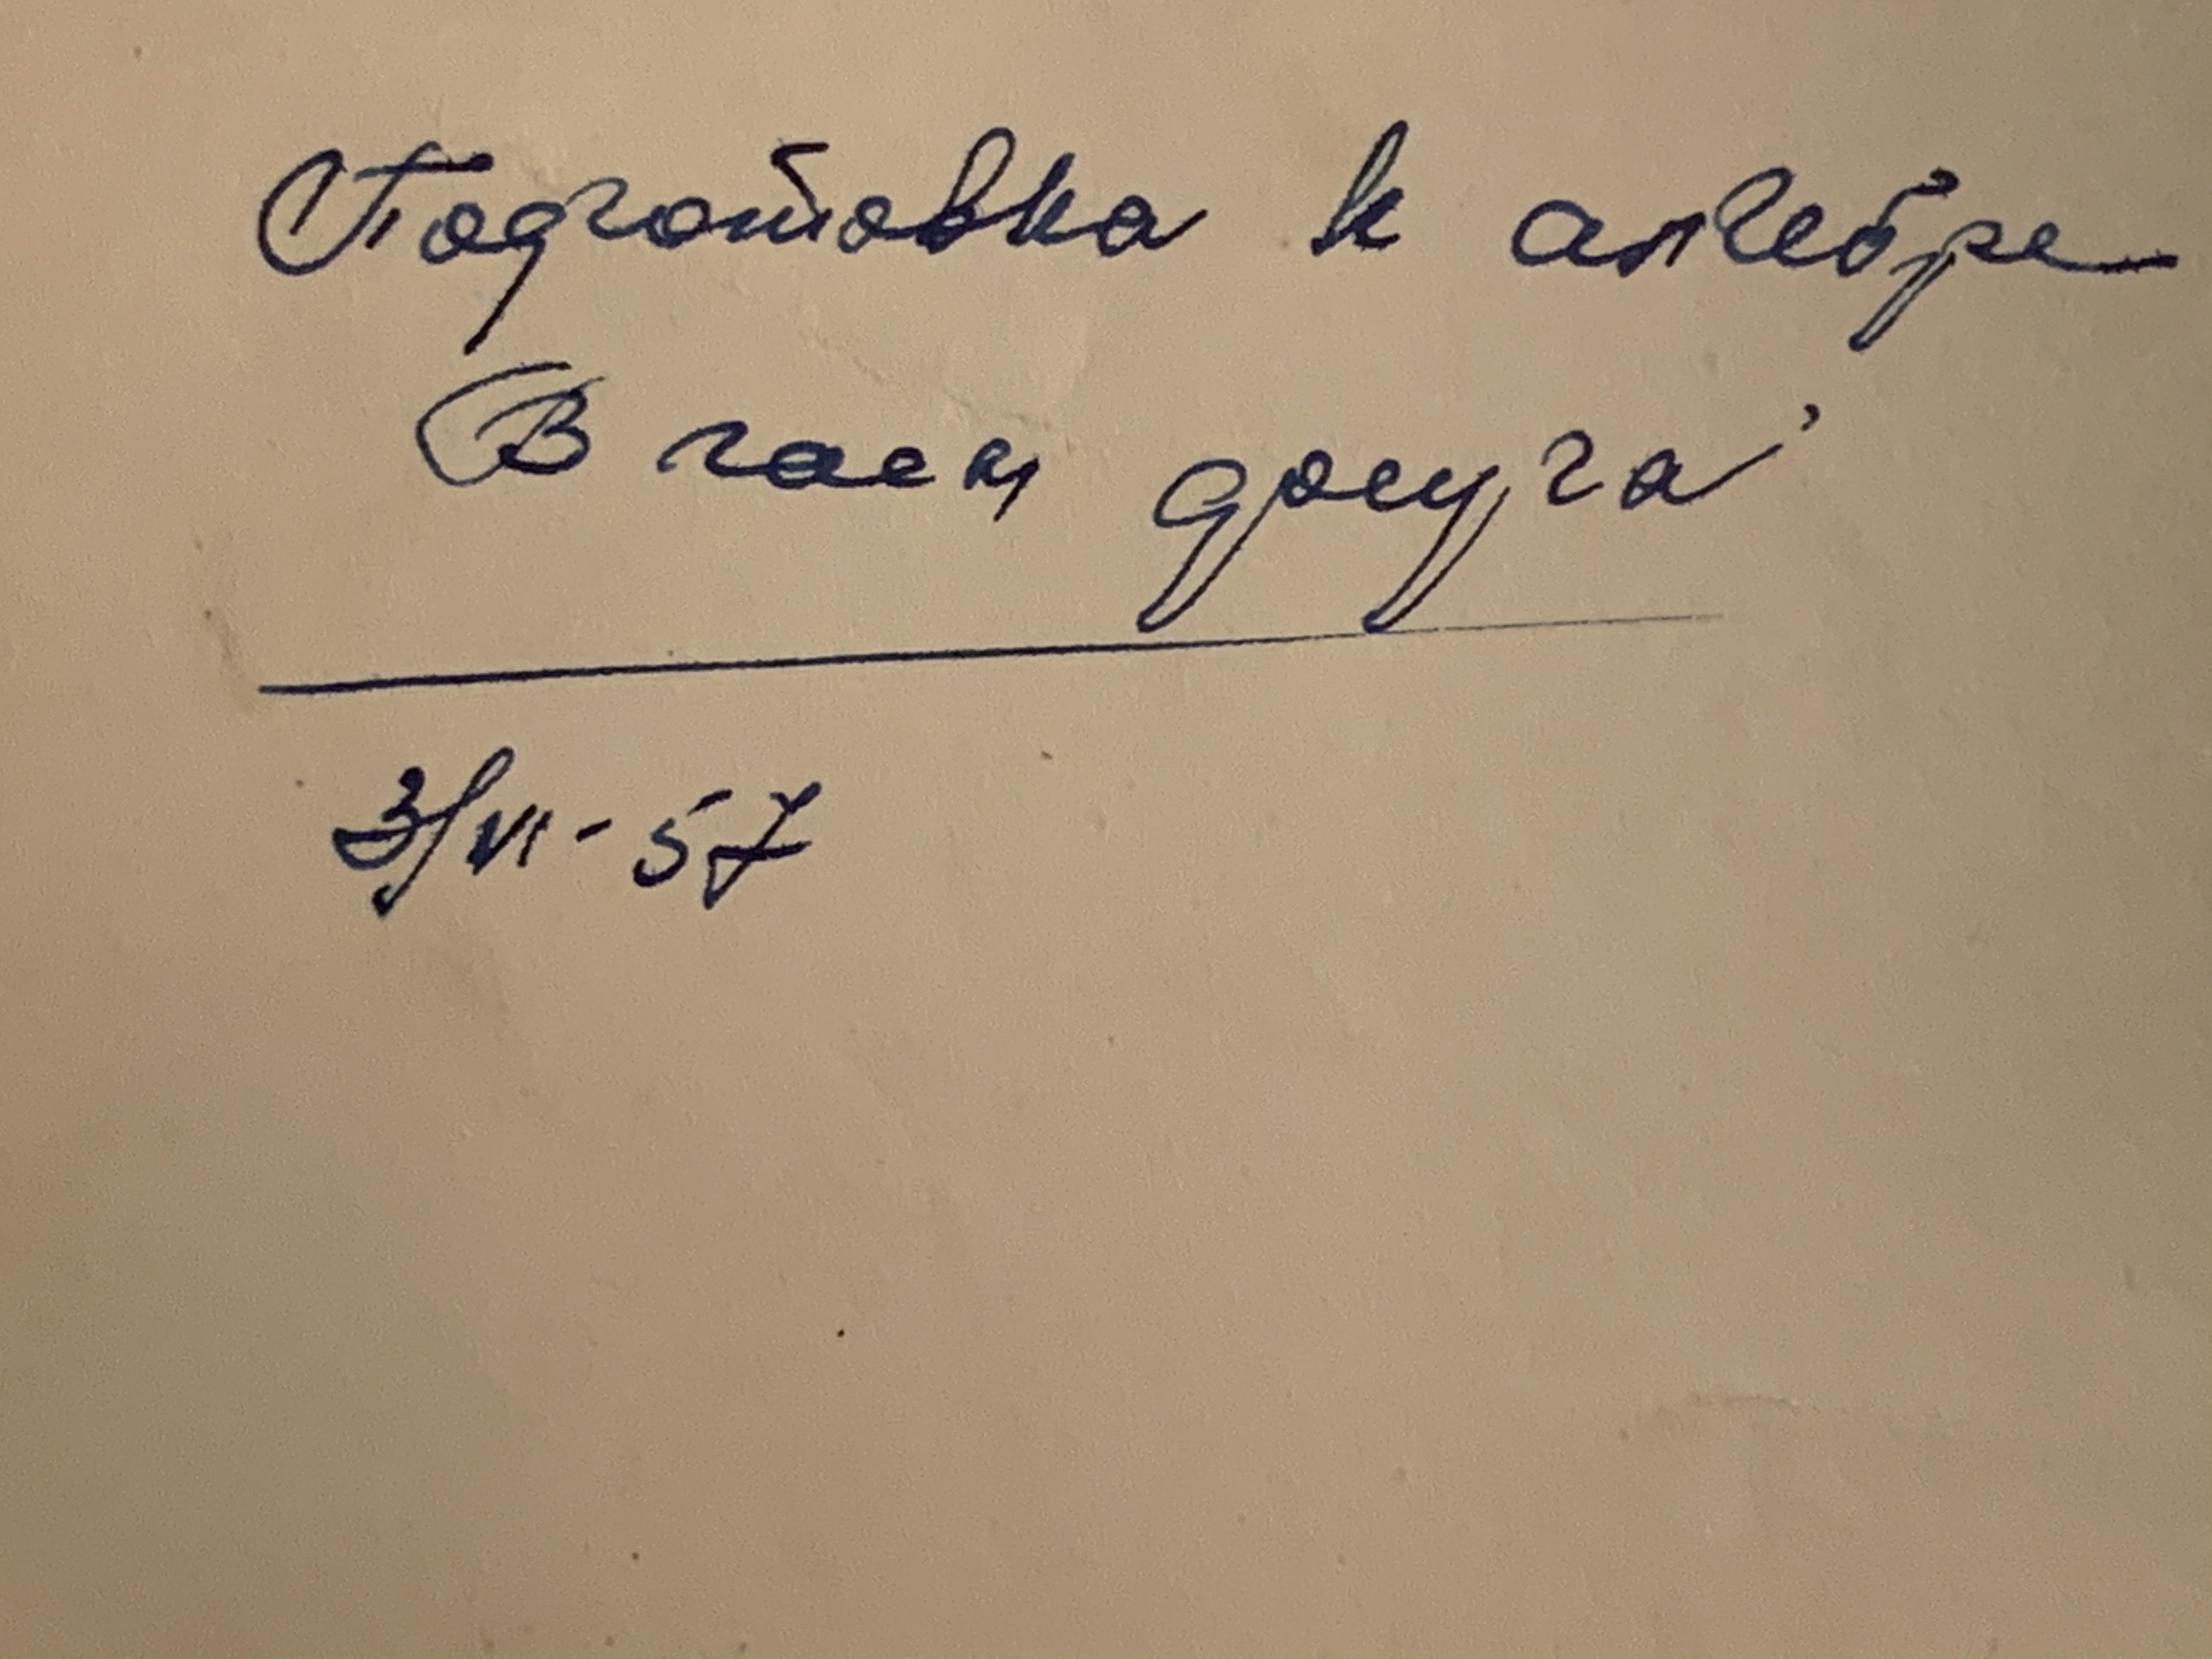 Подготовка к алгебре
В часы досуга
3/VI - 57